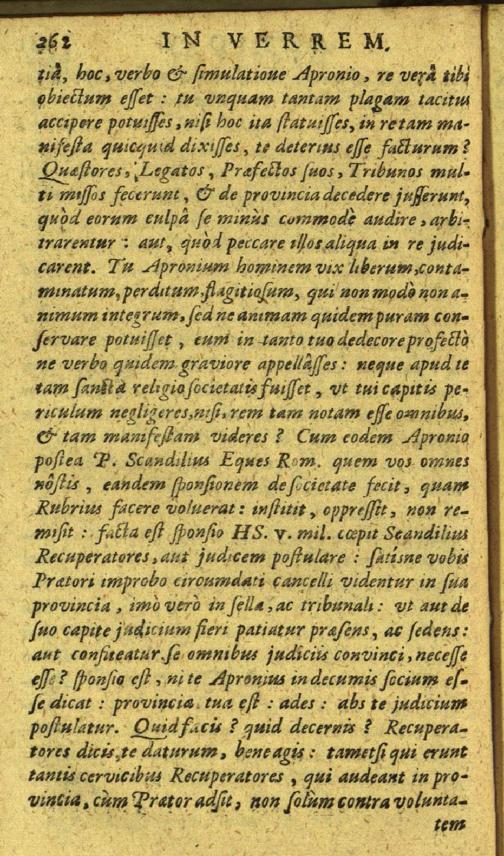 262 IN VERREM.
tiâ, hoc, verbo & simulatioue Apronio, re verâ tibi
obiectum esset : tu vnquam tantam plagam tacitus
accipere potuisses, nisi hoc ita statuisses, in re tam ma-
nifesta quicquid dixisses, te deterius esse facturum ?
Quæstores, Legatos, Præfectos suos, Tribunos mul-
ti missos fecerunt, & de provincia decedere jusserunt,
quòd eorum culpâ se minùs commodè audire, arbi-
trarentur : aut, quòd peccare illos aliqua in re judi-
carent. Tu Apronium hominem vix liberum, conta-
minatum, perditum, flagitiosum, qui non modò non a-
nimum integrum, sed ne animam quidem puram con-
servare potuisset, eum in tanto tuo dedecore profectò
ne verbo quidem graviore appellâsses : neque apud te
tam sanctâ religio societatis fuisset, vt tui capitis pe-
riculum negligeres, nisi, rem tam notam esse omnibus,
& tam manifestam videres ? Cum eodem Apronio
postea P. Scandilius Eques Rom. quem vos omnes
nôstis, eandem sponsionem de societate fecit, quam
Rubrius facere voluerat : institit, oppressit, non re-
misit : facta est sponsio HS. v. mil. cœpit Scandilius
Recuperatores, aut judicem postulare : satisne vobis
Prætori improbo circumdati cancelli videntur in sua
provincia, imò verò in sella, ac tribunali : vt aut de
suo capite judicium fieri patiatur præsens, ac sedens :
aut confiteatur se omnibus judiciis convinci, necesse
esse ? sponsio est, ni te Apronius in decumis socium es-
se dicat : provincia tua est : ades : abs te judicium
postulatur. Quid facis ? quid decernis ? Recupera-
tores dicis, te daturum, bene agis : tametsi qui erunt
tantis cervicibus Recuperatores, qui audeant in pro-
vincia, cùm Prætor adsit, non solùm contra volunta-
tem